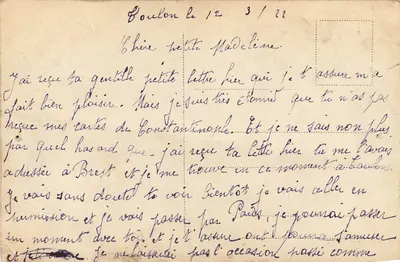 Toulon le 12 3/22
Chère petite Madeleine
J'ai reçue ta gentille petite lettre hier qui je t'assure m'a
fait bien plaisir. Mais je suis très étonné que tu n'as pas
reçue mes cartes de Constantinople. Et je ne sais non plus
par quel hasard que j'ai reçue ta lettre hier tu me l'avais
adressée à Brest et je me trouve en ce moment à Toulon.
Je vais sans doute te voir bientôt je vais aller en
permission et je vais passer par Paris, je pourrai passer
un moment avec toi et je t'assure ont pourra s'amuser
et je ne laisserai pas l'occasion passé comme